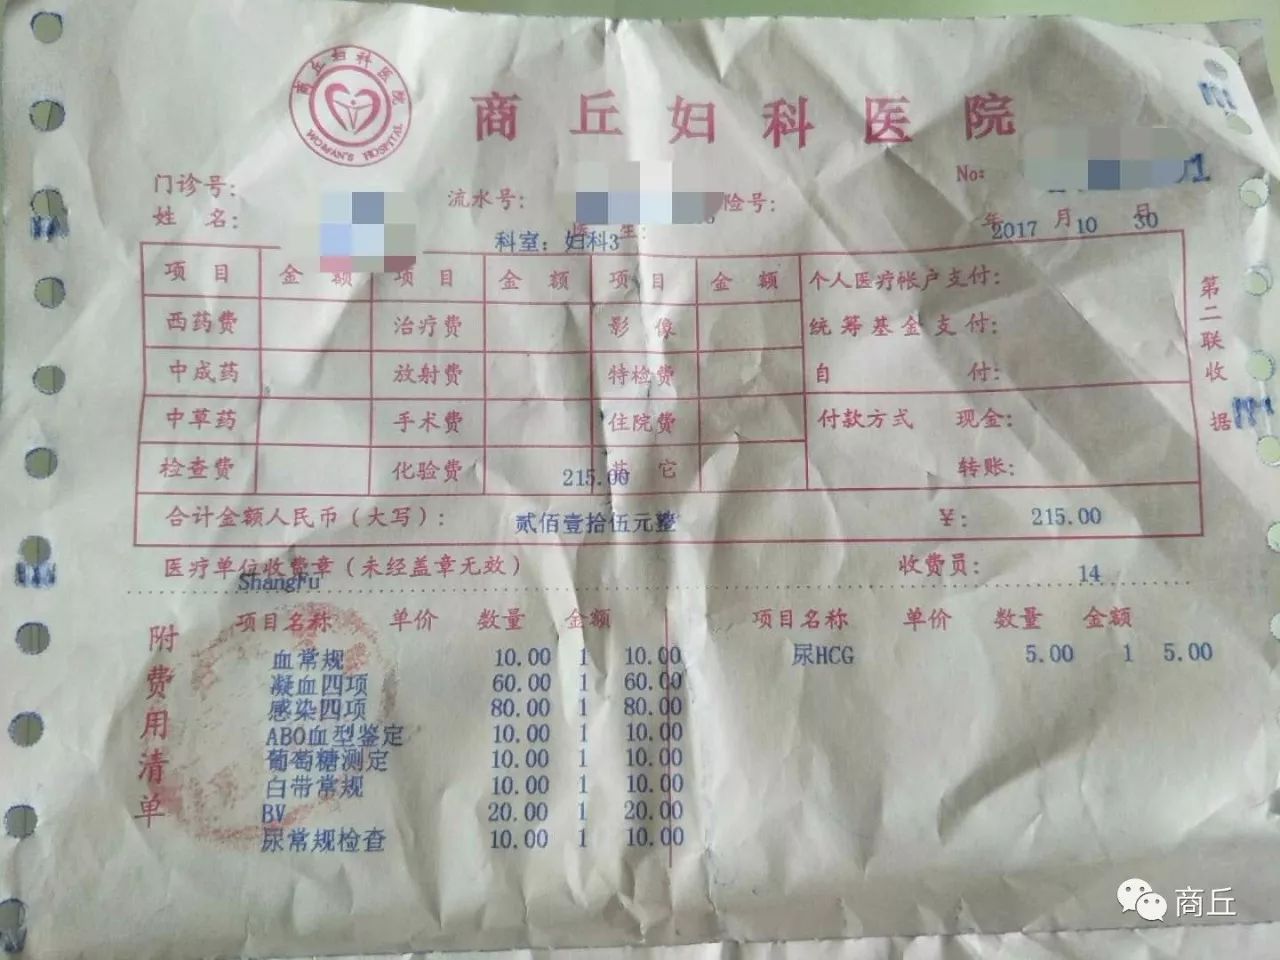 商丘妇科医院
WOMAN'S HOSPITAL
商丘妇科医院
门诊号: 流水号: 险号: No: 1
姓 名: 医 生: 年 月 日
科室: 妇科3 2017 10 30
项 目 金 额 项 目 金 额 项 目 金 额 个人医疗帐户支付:
西药费 治疗费 影 像 统筹基金支付:
中成药 放射费 特检费 自 付:
中草药 手术费 住院费 付款方式 现金:
检查费 化验费 215.00 其 它 转账:
合计金额人民币（大写）: 贰佰壹拾伍元整 ¥: 215.00
医疗单位收费章（未经盖章无效） 收费员: 14
ShangFu
第二联收据
附费用清单
项目名称 单价 数量 金额 项目名称 单价 数量 金额
血常规 10.00 1 10.00 尿HCG 5.00 1 5.00
凝血四项 60.00 1 60.00
感染四项 80.00 1 80.00
ABO血型鉴定 10.00 1 10.00
葡萄糖测定 10.00 1 10.00
白带常规 10.00 1 10.00
BV 20.00 1 20.00
尿常规检查 10.00 1 10.00
商丘